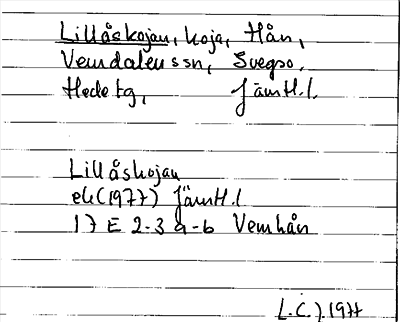 Lillåskojan, koja, Hån,
Vemdalens sn, Svegso,
Hede tg, Jämtl.l.
Lillåskojan
ek (1977) Jämtl.l
17 E 2-3 a-b Vemhån
L.C.J. 1977